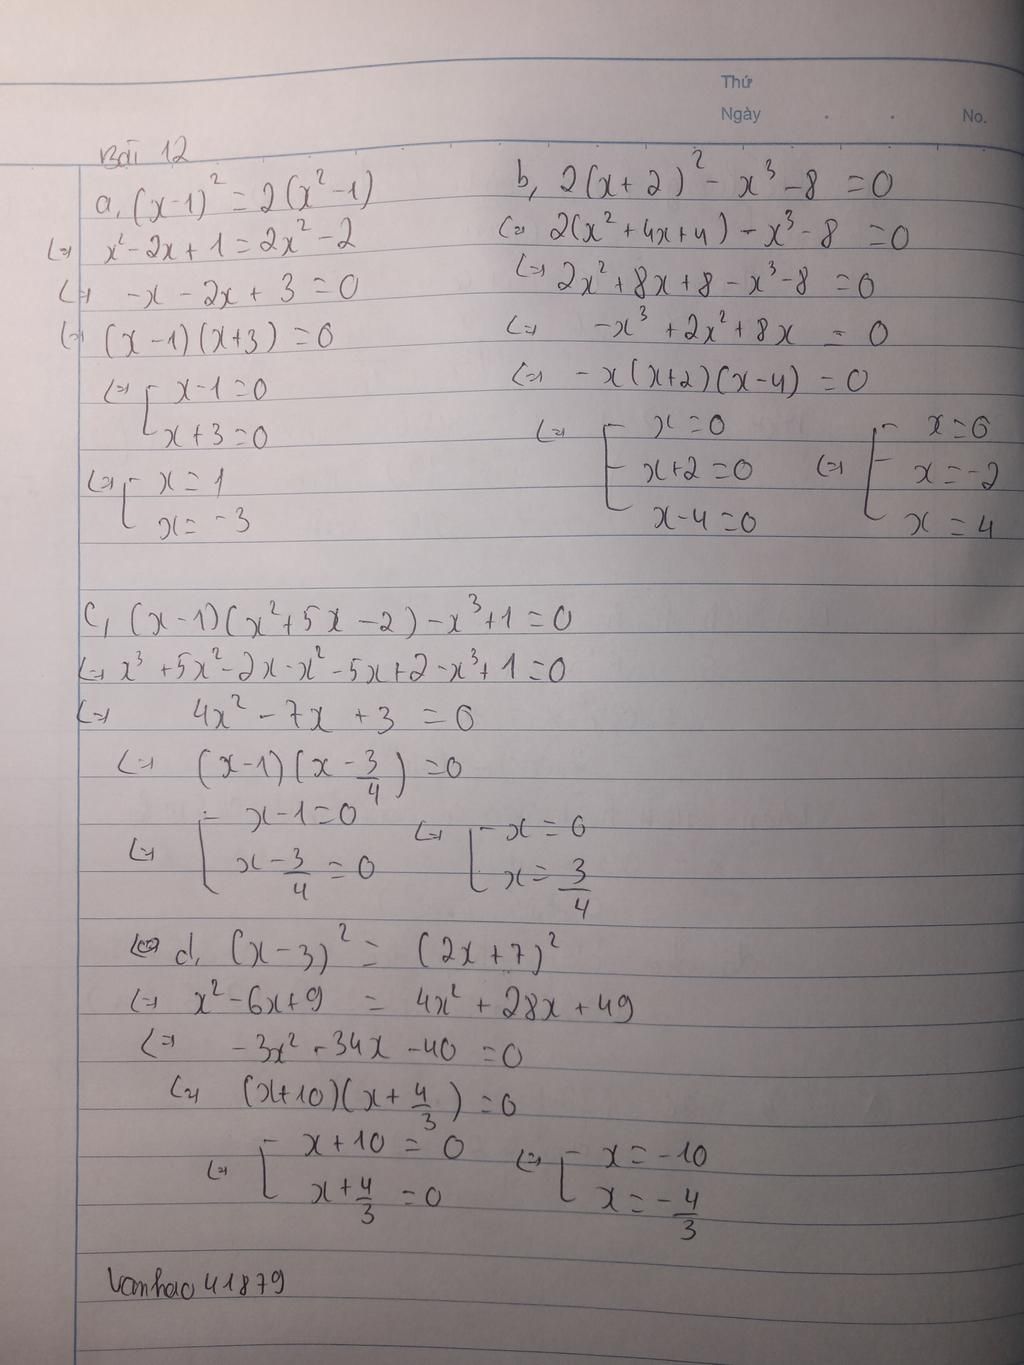 Thứ
Ngày . . No.
Bài 12
a, (x-1)² = 2(x²-1)
(=) x² - 2x + 1 = 2x² - 2
(=) -x - 2x + 3 = 0
(=) (x-1)(x+3) = 0
(=) [ x-1 = 0
x+3 = 0
(=) [ x = 1
x = -3
b, 2(x+2)² - x³ - 8 = 0
(=) 2(x² + 4x + 4) - x³ - 8 = 0
(=) 2x² + 8x + 8 - x³ - 8 = 0
(=) -x³ + 2x² + 8x = 0
(=) -x(x+2)(x-4) = 0
(=) [ x = 0 (=) [ x = 0
x+2 = 0 x = -2
x-4 = 0 x = 4
c, (x-1)(x² + 5x - 2) - x³ + 1 = 0
(=) x³ + 5x² - 2x - x² - 5x + 2 - x³ + 1 = 0
(=) 4x² - 7x + 3 = 0
(=) (x-1)(x - 3/4) = 0
(=) [ x-1 = 0 (=) [ x = 0
x - 3/4 = 0 x = 3/4
d, (x-3)² = (2x+7)²
(=) x² - 6x + 9 = 4x² + 28x + 49
(=) -3x² - 34x - 40 = 0
(=) (x+10)(x + 4/3) = 0
(=) [ x + 10 = 0 (=) [ x = -10
x + 4/3 = 0 x = -4/3
vanhao41879